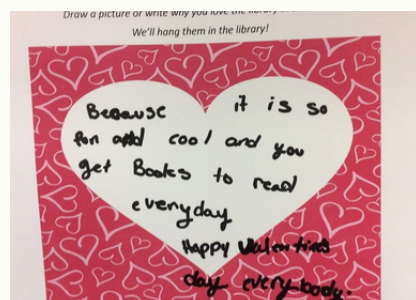 Draw a picture or write why you love the library
We'll hang them in the library!
Because it is so
fun and cool and you
get Books to read
everyday
Happy Valentines
day everybody.